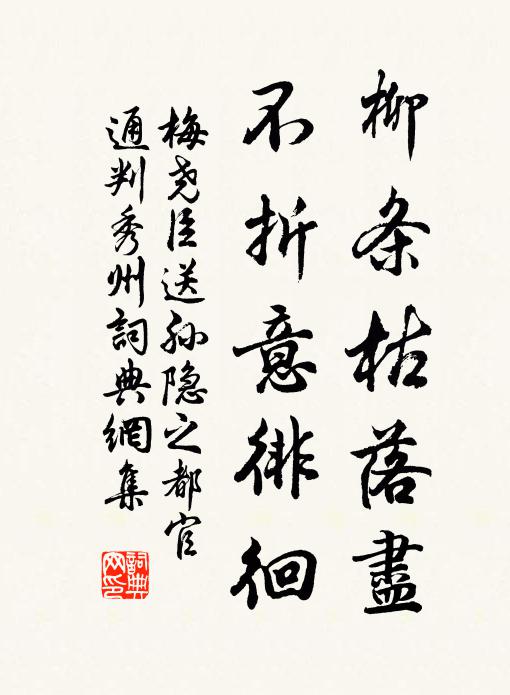 柳条枯落盡
不折意徘徊
梅尧臣送孙隐之都官
通判秀州詞典網集
詞典
网印